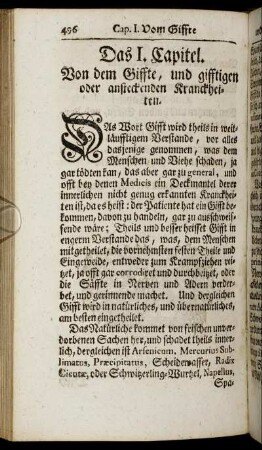 496 Cap. I. Vom Giffte
Das I. Capitel.
Von dem Giffte, und gifftigen
oder ansteckenden Kranckhei-
ten.
DAs Wort Gifft wird theils in weit-
läufftigen Verstande, vor alles
dasjenige genommen, was dem
Menschen und Viehe schaden, ja
gar tödten kan, das aber gar zu general, und
offt bey denen Medicis ein Deckmantel derer
innerlichen nicht genug erkannten Kranckhei-
ten ist, da es heist: der Patiente hat ein Gifft be-
kommen, davon zu handeln, gar zu ausschweif-
fende wäre; Theils und besser heisset Gift in
engerm Verstande das, was, dem Menschen
mitgetheilet, die vornehmsten festen Theile und
Eingeweide, entweder zum Krampfziehen rei-
tzet, ja offt gar corrodiret und durchbeitzet, oder
die Säffte in Nerven und Adern verder-
bet, und gerinnende machet. Und dergleichen
Gifft wird in natürliches, und übernatürliches,
am besten eingetheilet.
Das Natürliche kommet von frischen unver-
dorbenen Sachen her, und schadet theils inner-
lich, dergleichen ist Arsenicum, Mercurius Sub-
limatus, Præcipitatus, Scheidewasser, Radix
Cicutæ, oder Schwitzerling-Wurtzel, Napellus,
Spa-